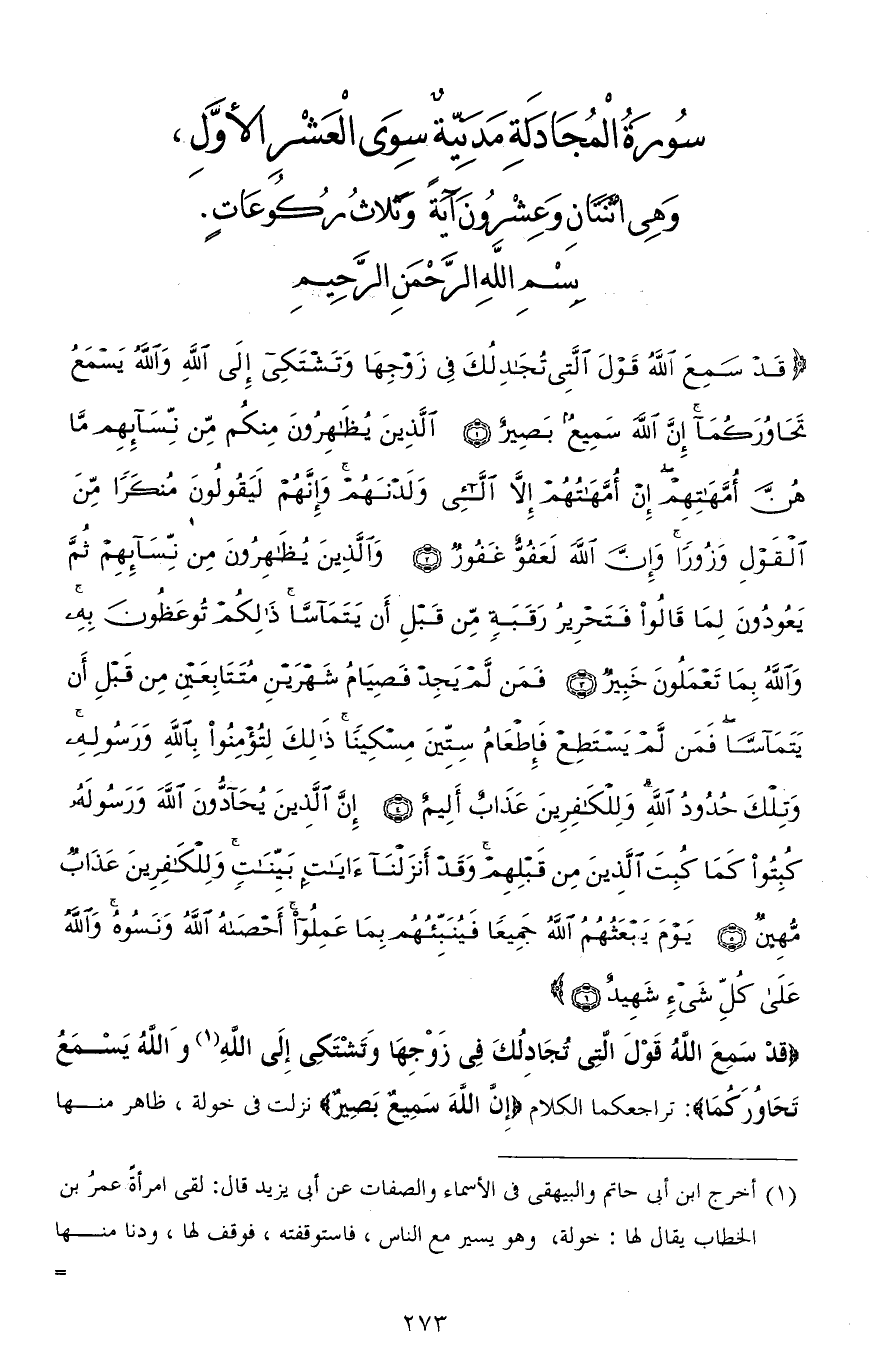 سُورَةُ الْمُجَادَلَةِ مَدَنِيَّةٌ سِوَى الْعَشْرِ الأَوَّلِ،
وَهِيَ اثْنَتَانِ وَعِشْرُونَ آيَةً وَثَلاثُ رُكُوعَاتٍ.
بِسْمِ اللَّهِ الرَّحْمَنِ الرَّحِيمِ
﴿ قَدْ سَمِعَ ٱللَّهُ قَوْلَ ٱلَّتِى تُجَـٰدِلُكَ فِى زَوْجِهَا وَتَشْتَكِىٓ إِلَى ٱللَّهِ وَٱللَّهُ يَسْمَعُ
تَحَاوُرَكُمَآ ۚ إِنَّ ٱللَّهَ سَمِيعٌۢ بَصِيرٌ ۝١ ٱلَّذِينَ يُظَـٰهِرُونَ مِنكُم مِّن نِّسَآئِهِم مَّا
هُنَّ أُمَّهَـٰتِهِمْ ۖ إِنْ أُمَّهَـٰتُهُمْ إِلَّا ٱلَّـٰٓـِٔى وَلَدْنَهُمْ ۚ وَإِنَّهُمْ لَيَقُولُونَ مُنكَرًا مِّنَ
ٱلْقَوْلِ وَزُورًا ۚ وَإِنَّ ٱللَّهَ لَعَفُوٌّ غَفُورٌ ۝٢ وَٱلَّذِينَ يُظَـٰهِرُونَ مِن نِّسَآئِهِمْ ثُمَّ
يَعُودُونَ لِمَا قَالُوا۟ فَتَحْرِيرُ رَقَبَةٍ مِّن قَبْلِ أَن يَتَمَآسَّا ۚ ذَٰلِكُمْ تُوعَظُونَ بِهِۦ ۚ
وَٱللَّهُ بِمَا تَعْمَلُونَ خَبِيرٌ ۝٣ فَمَن لَّمْ يَجِدْ فَصِيَامُ شَهْرَيْنِ مُتَتَابِعَيْنِ مِن قَبْلِ أَن
يَتَمَآسَّا ۖ فَمَن لَّمْ يَسْتَطِعْ فَإِطْعَامُ سِتِّينَ مِسْكِينًا ۚ ذَٰلِكَ لِتُؤْمِنُوا۟ بِٱللَّهِ وَرَسُولِهِۦ ۚ
وَتِلْكَ حُدُودُ ٱللَّهِ ۗ وَلِلْكَـٰفِرِينَ عَذَابٌ أَلِيمٌ ۝٤ إِنَّ ٱلَّذِينَ يُحَآدُّونَ ٱللَّهَ وَرَسُولَهُۥ
كُبِتُوا۟ كَمَا كُبِتَ ٱلَّذِينَ مِن قَبْلِهِمْ ۚ وَقَدْ أَنزَلْنَآ ءَايَـٰتٍۭ بَيِّنَـٰتٍ ۚ وَلِلْكَـٰفِرِينَ عَذَابٌ
مُّهِينٌ ۝٥ يَوْمَ يَبْعَثُهُمُ ٱللَّهُ جَمِيعًا فَيُنَبِّئُهُم بِمَا عَمِلُوٓا۟ ۚ أَحْصَىٰهُ ٱللَّهُ وَنَسُوهُ ۚ وَٱللَّهُ
عَلَىٰ كُلِّ شَىْءٍ شَهِيدٌ ۝٦ ﴾
﴿قَدْ سَمِعَ اللَّهُ قَوْلَ الَّتِي تُجَادِلُكَ فِي زَوْجِهَا وَتَشْتَكِي إِلَى اللَّهِ(١) وَاللَّهُ يَسْمَعُ
تَحَاوُرَكُمَا﴾: تراجعكما الكلام ﴿إِنَّ اللَّهَ سَمِيعٌ بَصِيرٌ﴾ نزلت فى خولة ، ظاهر منها
(١) أخرج ابن أبى حاتم والبيهقى فى الأسماء والصفات عن أبى يزيد قال: لقى امرأةً عمرُ بن
الخطاب يقال لها : خولة، وهو يسير مع الناس ، فاستوقفته ، فوقف لها ، ودنا منها
=
٢٧٣